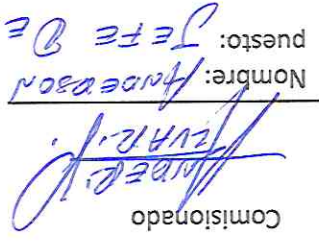 Comisionado
ANDER
EVAR.
Nombre: ANDERSON
puesto: JEFE DE